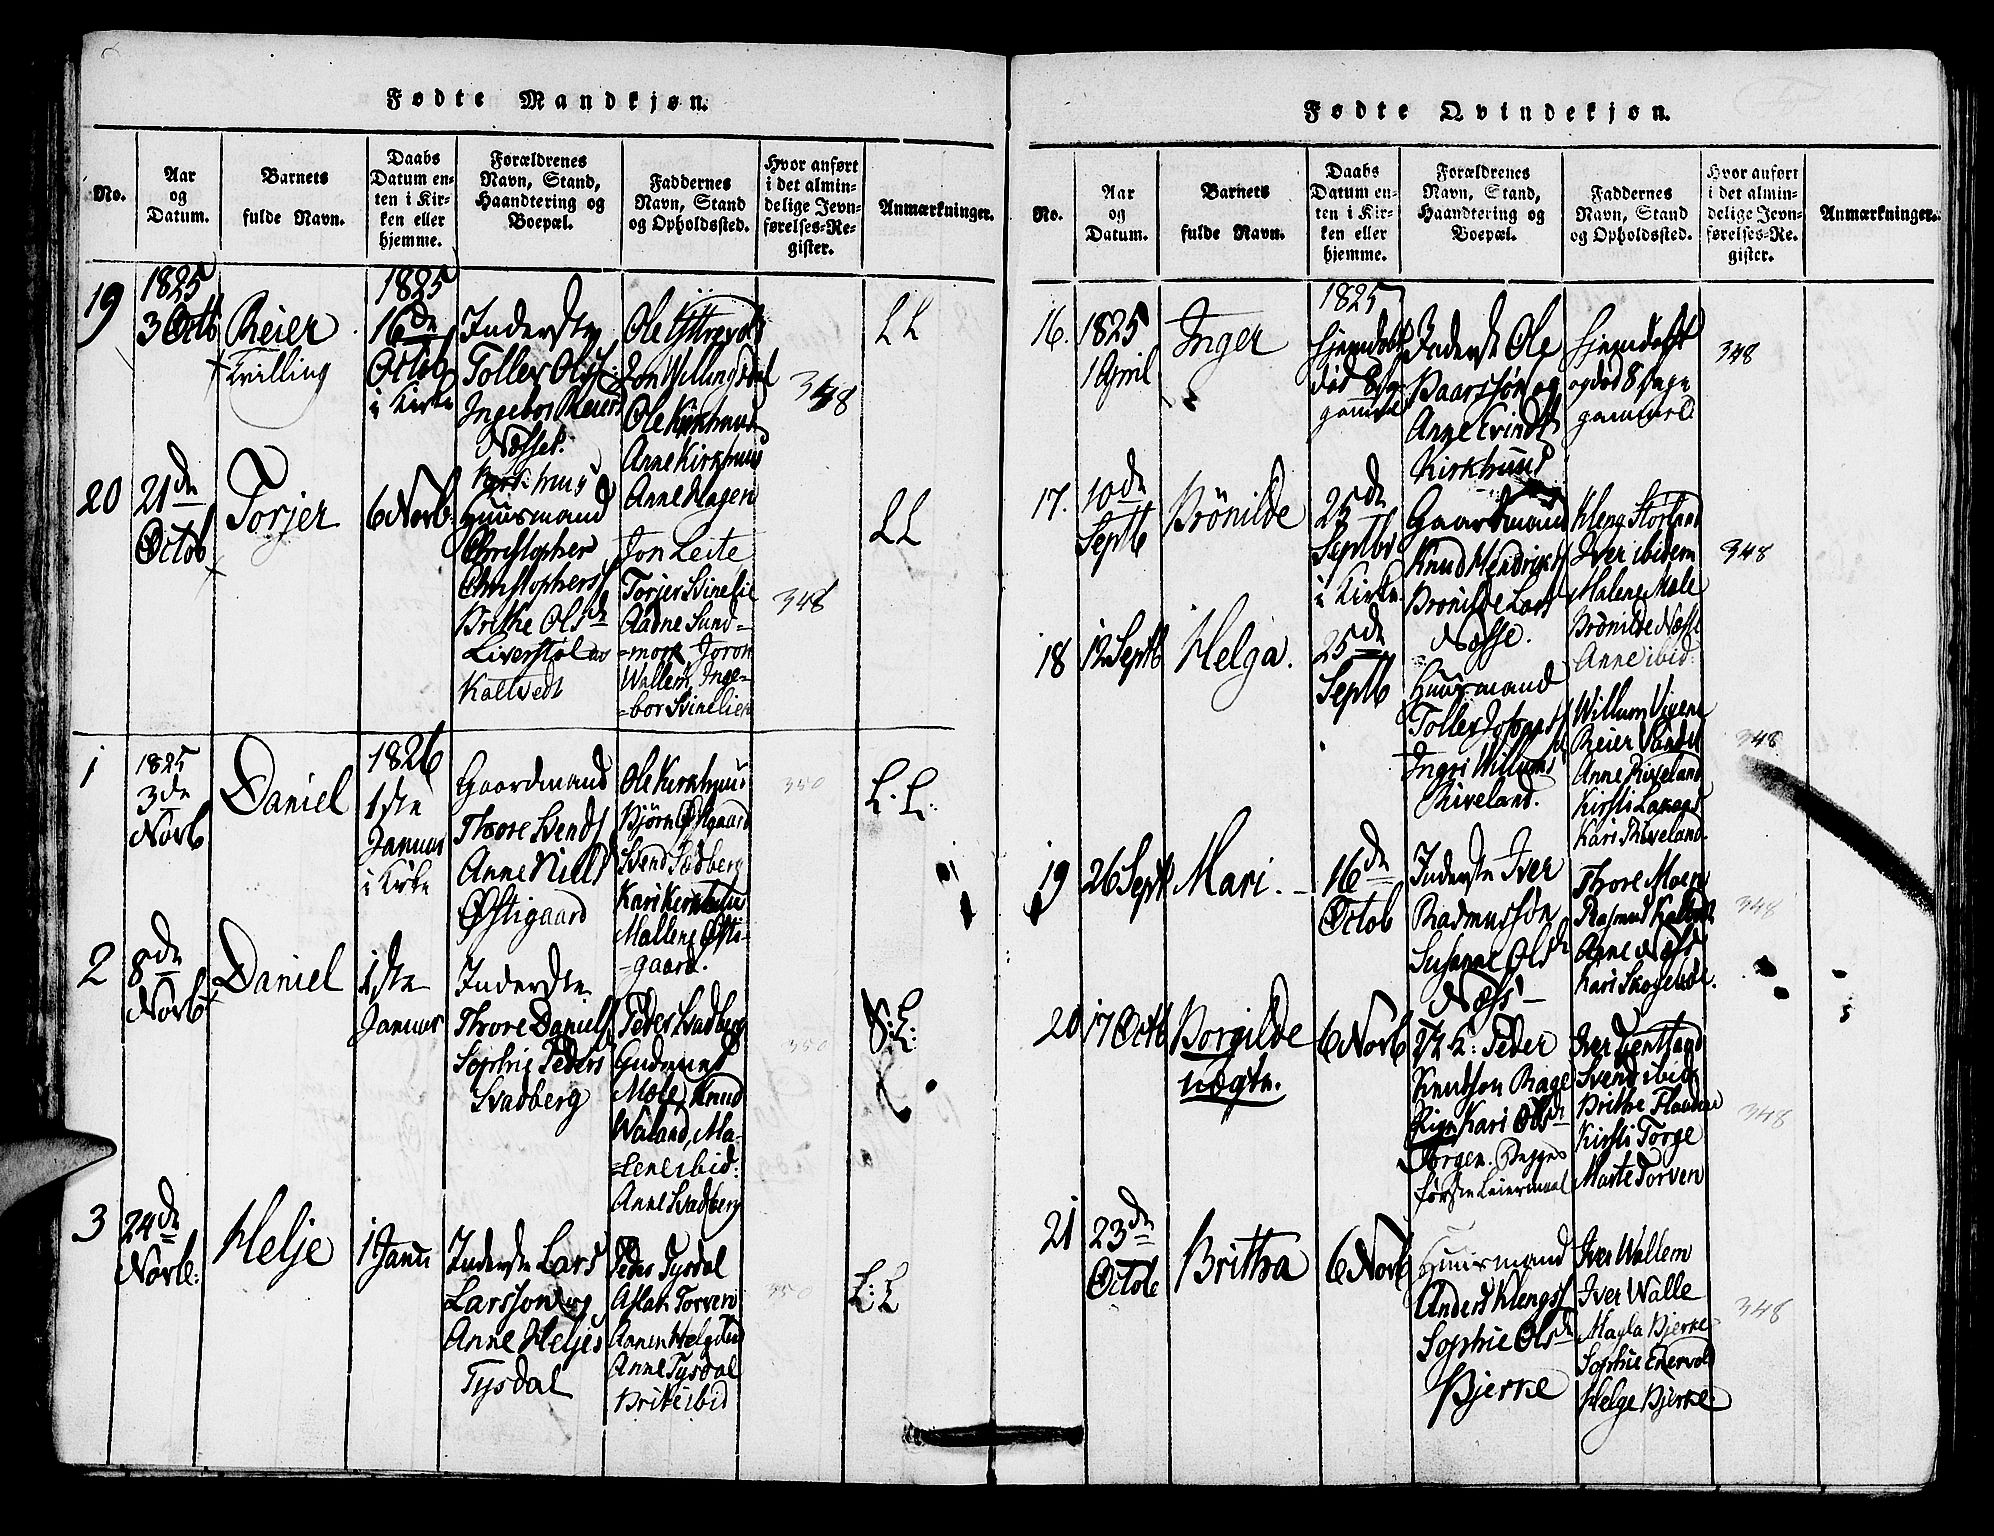 Fødte Mandkjøn.
No.
Aar
og
Datum.
Barnets
fulde Navn.
Daabs
Datum en-
ten i Kir-
ken eller
hjemme.
Forældrenes
Navn, Stand,
Haandtering og
Boepæl.
Faddernes
Navn, Stand
og Opholdssted.
Hvor anført
i det almin-
delige Jevn-
førelses-Re-
gister.
Anmærkninger.
19
1825
3 Octb
Reier
Tvilling
1825
16de
Octob
i Kirke
Inderste
Toller Ols
Ingebor Reiers
Nosset.
Kirkhuus
Ole
Jon Willingsdal
Ole Kirkhuus
Anne Kirkhuus
Anne Hagen
348
LL
20
21de
Octob
Torjer
6 Novb.
Huusmand
Christopher
Christophers
Brithe Olsd
Liverstøl
Kaltvedt
Jon Leite
Torjer Svinelie
Aadne Sund=
=mork Joron
Wallem, Inge=
=bor Svinelien
348
LL
1
1825
3de
Novb
Daniel
1826
1ste
Januar
i Kirke
Gaardmand
Thore Svends
Anne Niels
Østigaard
Ole Kirkhuus
Bjørn Østigaard
Svend Svadberg
Kari Kirkhuus
Mallene Østi-
-gaard.
350
L. L.
2
8de
Novb
Daniel
1ste
Januar
Inderste
Thore Daniels
Sophie Peders
Svadberg
Peder Svadberg
Gudmund
Mæle, Knud
Waland, Ma-
=lene ibid:
Anne Svadberg
350
S: L:
3
24de
Novb:
Helje
1 Janu
Inderste Lars
Larsson og
Anne Heljes
Tysdal
Peder Tysdal
Aslak Torven
Anne Tysdal
Brite ibid
350
L: L
Fødte Qvindekjøn.
No.
Aar
og
Datum.
Barnets
fulde Navn.
Daabs
Datum en-
ten i Kir-
ken eller
hjemme.
Forældrenes
Navn, Stand,
Haandtering og
Boepæl.
Faddernes
Navn, Stand
og Opholdssted.
Hvor anført
i det almin-
delige Jevn-
førelses-Re-
gister.
Anmærkninger.
16.
1825
1 April
Inger
1825
Hjemdøbt
død 8 Dage
gammel
Inderst Ole
Baarssøn og
Anne Evindt
Kirkhuus
Hjemdøbt
og død 8 Dage
gammel
348
17.
10de
Septb
Brönilde
25de
Septbr
i Kirke
Gaardmand
Knud Hendriks
Bronilde Lars
Nosse.
Kleng Störland
Iver ibidem
Malene Mæle
Brönilde Nosse
Anne ibid:
348
18
12 Septb
Helga.
25de
Septb
Huusmand
Toller
Ingri Willums
Riveland.
Willum Vigene
Reier
Anne Riveland
Kirsti
Kari Riveland.
348
19
26 Septb
Mari.
16de
Octob
Inderste Iver
Rasmussön
Susanne Olsd
Næss
Thore Moen
Rasmus
Anne Næss
Kari
348
20
17 Octb
Borgilde
uægte.
6 Novb
Peder
Knutson
Kari Olsd
Begges
første Leiermaal
Iver
Svend ibid
Brithe
Kirsti Torge
Marte Torven
348
21
23de
Octob
Britha
6 Novb
Huusmand
Anders Klengs
Sophie Olsd
Bjerke
Iver Wallem
Iver Walle
Magla Bjerke
Sophie
Helge Bjerke
348